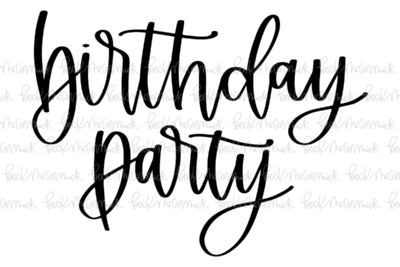 birthday
party